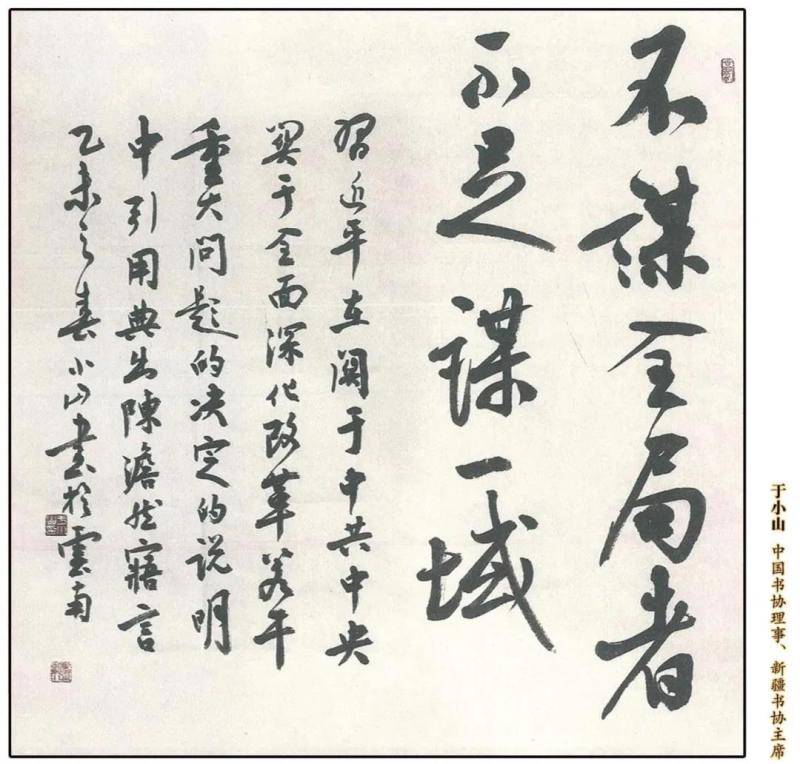 不谋全局者
不足谋一域
習近平在関于中共中央
関于全面深化改革若干
重大问题的决定的说明
中引用典出陳澹然寤言
乙未之春小山書於雲南
于小山 中国书协理事、新疆书协主席